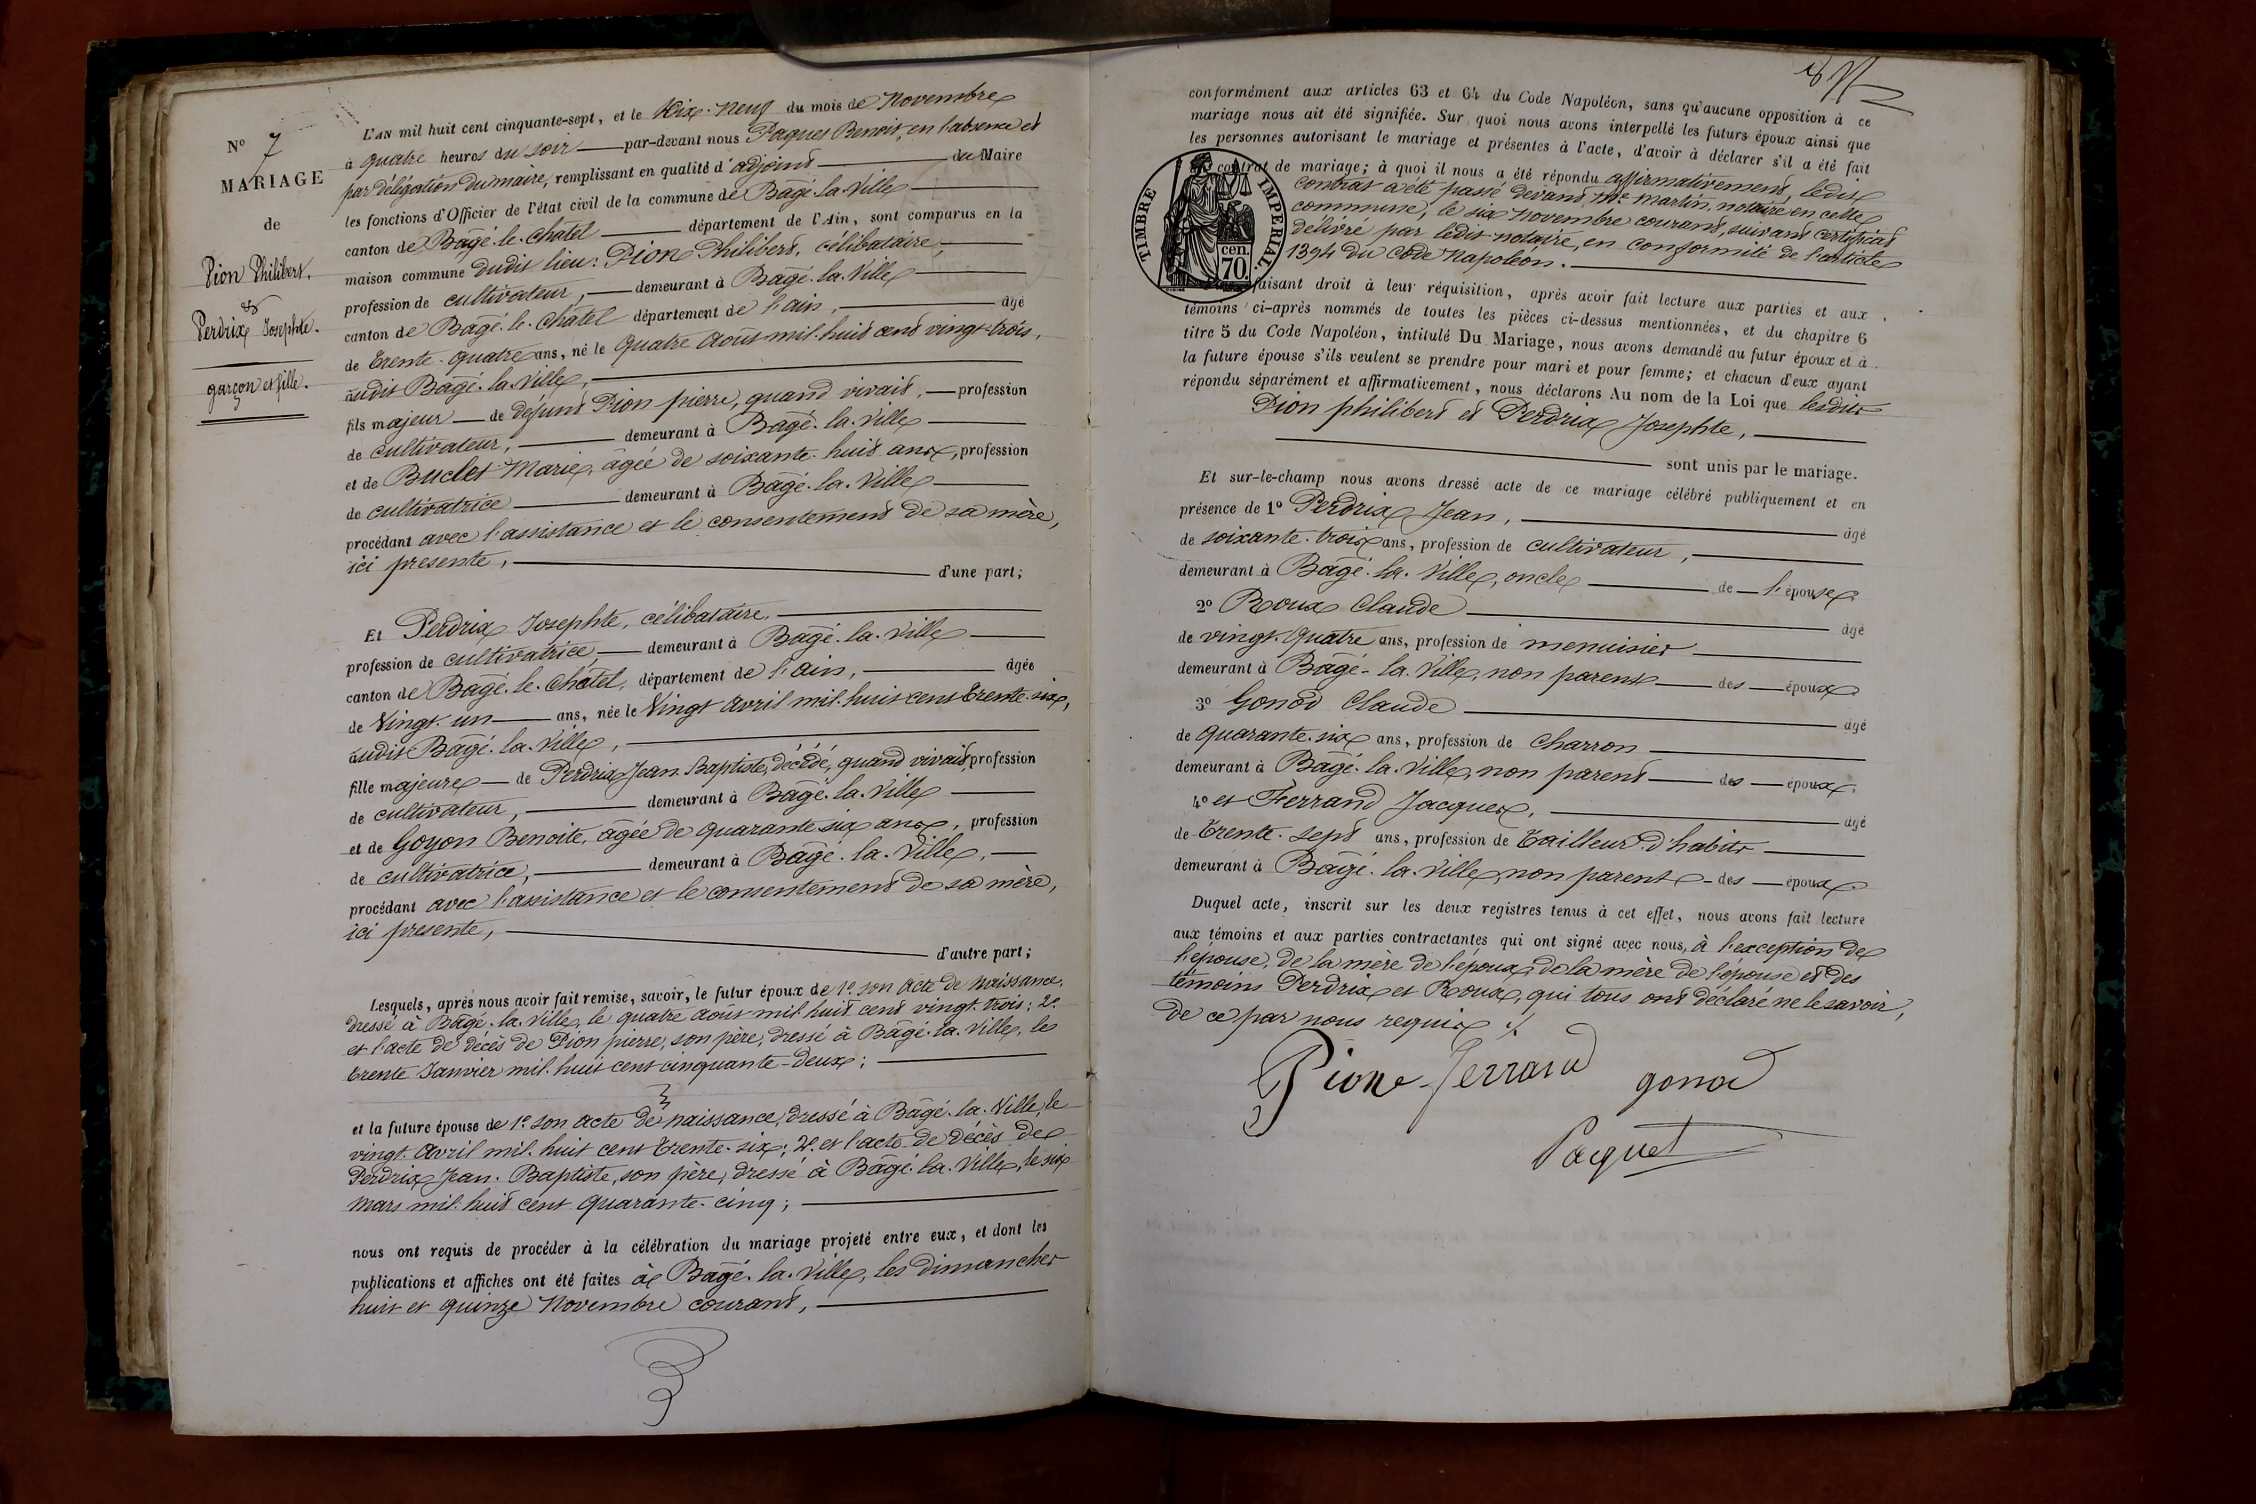 N° 7
MARIAGE
de
Pion Philibert.
&
Perdrix Josephte.
garçon et fille.
L'AN mil huit cent cinquante-sept, et le dix-neuf du mois de Novembre
à quatre heures du soir par-devant nous Paquet Benoit, en l'absence et
par délégation du maire, remplissant en qualité d'adjoint du Maire
les fonctions d'Officier de l'état civil de la commune de Bâgé-la-Ville
canton de Bâgé-le-Chatel département de l'Ain, sont comparus en la
maison commune dudit lieu: Pion Philibert, célibataire,
profession de cultivateur, demeurant à Bâgé-la-Ville
canton de Bâgé-le-Chatel département de l'ain, âgé
de trente-quatre ans, né le quatre Août mil-huit cent vingt-trois,
audit Bâgé-la-Ville,
fils majeur de défunt Pion pierre, quand vivait, profession
de cultivateur, demeurant à Bâgé-la-Ville
et de Buclet Marie, âgée de soixante-huit ans, profession
de cultivatrice demeurant à Bâgé-la-Ville
procédant avec l'assistance et le consentement de sa mère,
ici presente, d'une part;
Et Perdrix Josephte, célibataire,
profession de cultivatrice, demeurant à Bâgé-la-Ville
canton de Bâgé-le-Châtel, département de l'ain, âgée
de Vingt-un ans, née le Vingt avril mil-huit cent trente-six,
audit Bâgé-la-Ville,
fille majeure de Perdrix Jean-Baptiste, décédé, quand vivait, profession
de cultivateur, demeurant à Bâgé-la-Ville
et de Goyon Benoite, âgée de quarante six ans, profession
de cultivatrice, demeurant à Bâgé-la-Ville,
procédant avec l'assistance et le consentement de sa mère,
ici presente,
d'autre part;
Lesquels, après nous avoir fait remise, savoir, le futur époux de 1°. son acte de naissance,
dressé à Bâgé-la-Ville, le quatre août mil-huit cent vingt-trois; 2°.
et l'acte de décès de Pion pierre, son père, dressé à Bâgé-la-Ville, le
trente Janvier mil-huit cent cinquante-deux;
et la future épouse de 1°. son acte de naissance, dressé à Bâgé-la-Ville, le
vingt avril mil-huit cent trente-six; 2°. et l'acte de décès de
Perdrix Jean-Baptiste, son père, dressé à Bâgé-la-Ville, le six
mars mil-huit cent quarante-cinq;
nous ont requis de procéder à la célébration du mariage projeté entre eux, et dont les
publications et affiches ont été faites à Bâgé-la-Ville, les dimanches
huit et quinze Novembre courant,
conformément aux articles 63 et 64 du Code Napoléon, sans qu'aucune opposition à ce
mariage nous ait été signifiée. Sur quoi nous avons interpellé les futurs époux ainsi que
les personnes autorisant le mariage et présentes à l'acte, d'avoir à déclarer s'il a été fait
contrat de mariage; à quoi il nous a été répondu affirmativement, ledit
contrat a été passé devant Me. Martin, notaire en cette
commune, le six Novembre courant, suivant certificat
délivré par ledit notaire, en conformité de l'article
1394 du Code Napoléon.
TIMBRE IMPERIAL.
cen.
70.
faisant droit à leur réquisition, après avoir fait lecture aux parties et aux
témoins ci-après nommés de toutes les pièces ci-dessus mentionnées, et du chapitre 6
titre 5 du Code Napoléon, intitulé Du Mariage, nous avons demandé au futur époux et à
la future épouse s'ils veulent se prendre pour mari et pour femme; et chacun d'eux ayant
répondu séparément et affirmativement, nous déclarons Au nom de la Loi que lesdits
Pion philibert et Perdrix Josephte,
sont unis par le mariage.
Et sur-le-champ nous avons dressé acte de ce mariage célébré publiquement et en
présence de 1° Perdrix Jean, âgé
de soixante-trois ans, profession de cultivateur,
demeurant à Bâgé-la-Ville, oncle de l'épouse,
2° Roux Claude âgé
de vingt-quatre ans, profession de menuisier
demeurant à Bâgé-la-Ville, non parent des époux
3° Gonod Claude âgé
de quarante-six ans, profession de charron
demeurant à Bâgé-la-Ville, non parent des époux,
4° et Ferrand Jacques, âgé
de trente-sept ans, profession de tailleur d'habits
demeurant à Bâgé-la-Ville, non parent des époux.
Duquel acte, inscrit sur les deux registres tenus à cet effet, nous avons fait lecture
aux témoins et aux parties contractantes qui ont signé avec nous, à l'exception de
l'épouse, de la mère de l'époux, de la mère de l'épouse et des
témoins Perdrix et Roux, qui tous ont déclaré ne le savoir,
de ce par nous requis
Pion Ferrand gonod
Paquet